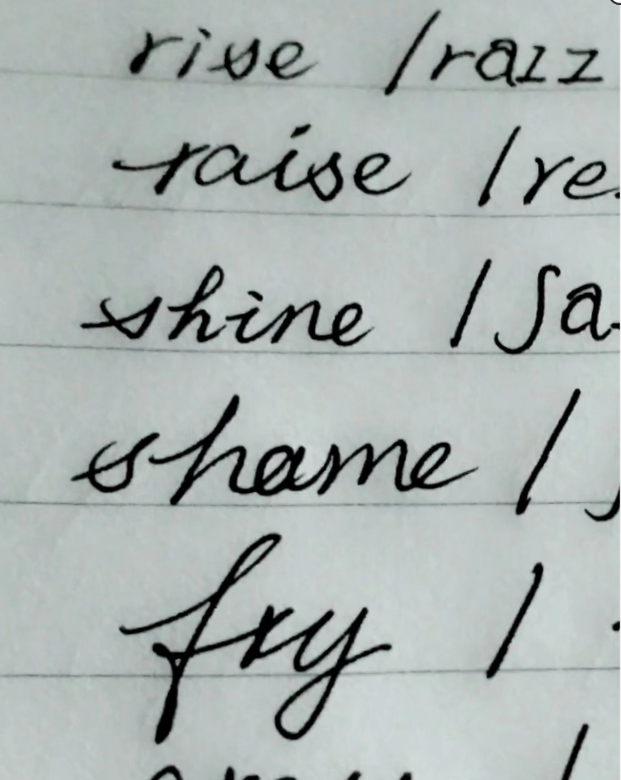 rise /raɪz
raise /re
shine /ʃa
shame /
fry /